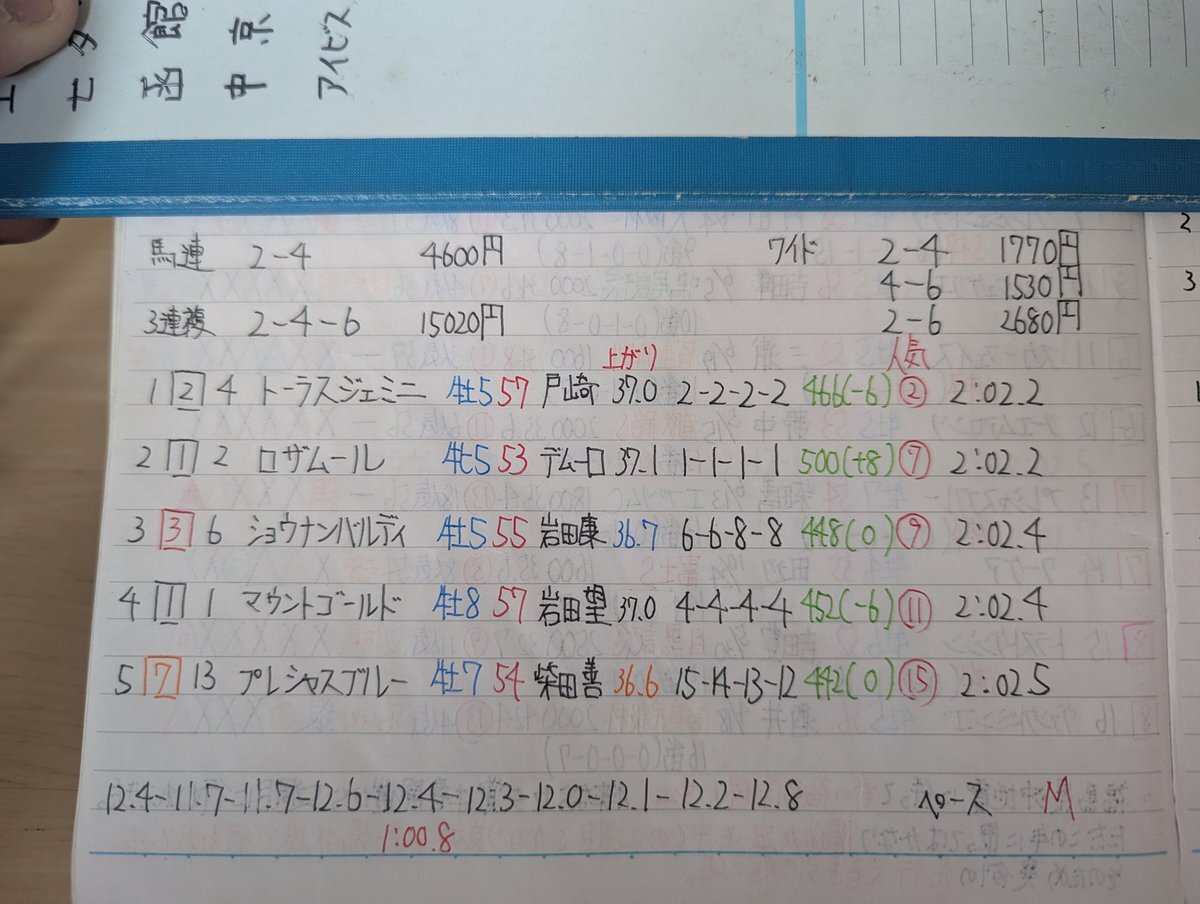 函館
中京
アイビス
馬連 2-4 4600円 ワイド 2-4 1770円
4-6 1530円
3連複 2-4-6 15020円 2-6 2680円
上がり 人気
1 2 4 トーラスジェミニ 牡5 57 戸崎 37.0 2-2-2-2 466(-6) ② 2:02.2
2 1 2 ロザムール 牝5 53 デムーロ 37.1 1-1-1-1 500(+8) ⑦ 2:02.2
3 3 6 ショウナンバルディ 牡5 55 岩田康 36.7 6-6-8-8 448(0) ⑨ 2:02.4
4 1 1 マウントゴールド 牡8 57 岩田望 37.0 4-4-4-4 452(-6) ⑪ 2:02.4
5 7 13 プレシャスブルー 牡7 54 柴田善 36.6 15-14-13-12 442(0) ⑮ 2:02.5
12.4-11.7-11.7-12.6-12.4-12.3-12.0-12.1-12.2-12.8 ペース M
1:00.8